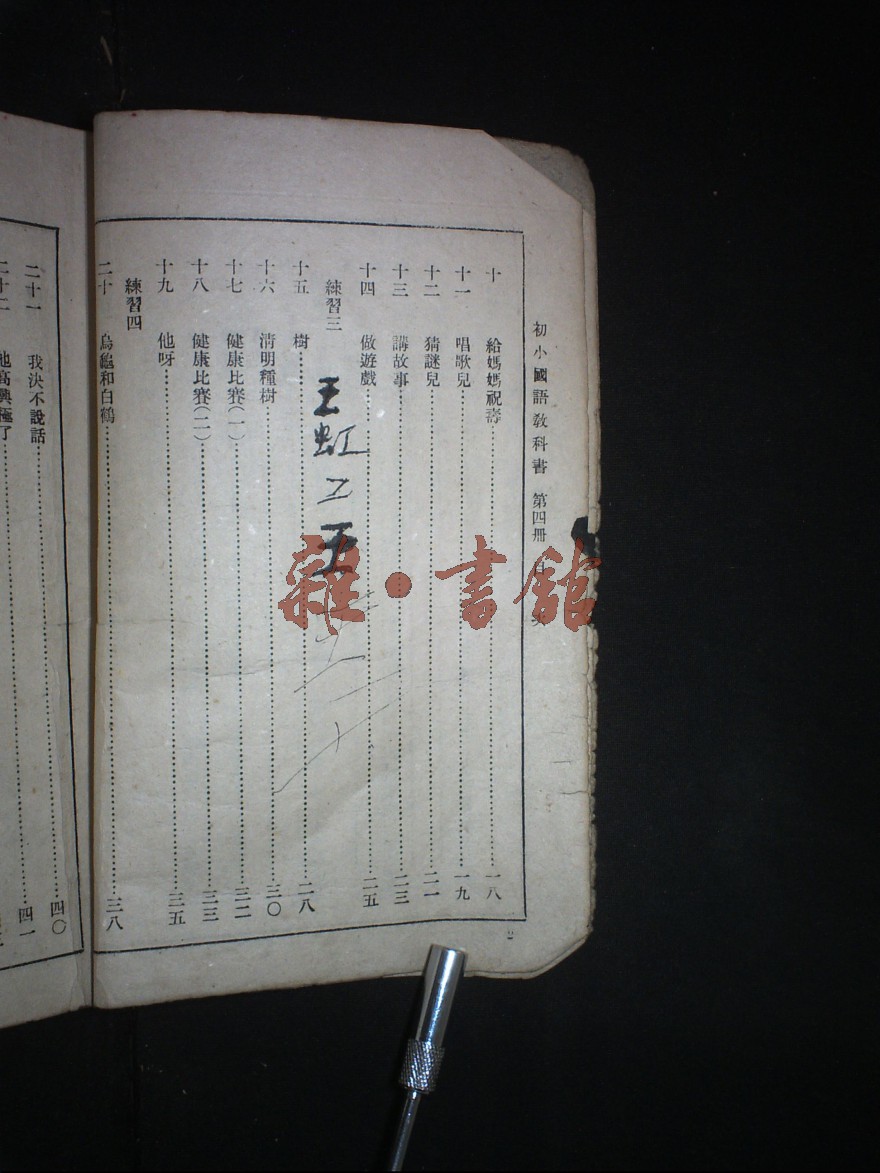 初小國語教科書 第四冊 目 次
十 給媽媽祝壽……一八
十一 唱歌兒……一九
十二 猜謎兒……二一
十三 講故事……二三
十四 做遊戲……二五
練習三
十五 樹……二八
十六 清明種樹……三〇
十七 健康比賽(一)……三二
十八 健康比賽(二)……三三
十九 他呀……三五
練習四
二十 烏龜和白鶴……三八
二十一 我決不說話……四〇
二十二 他高興極了……四一
2
王虹
雜·書館